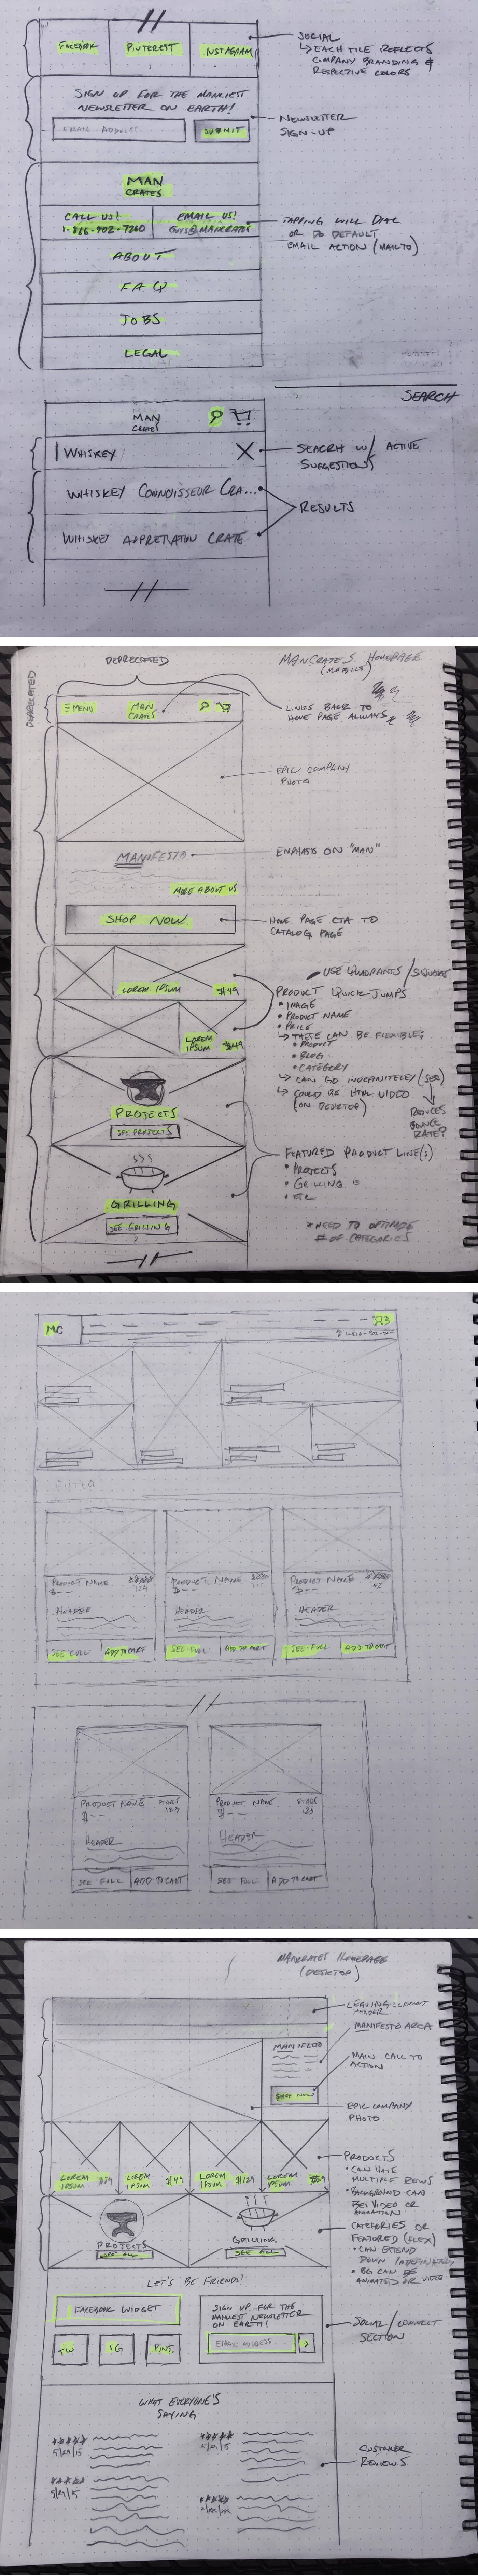 FACEBOOK
PINTEREST
INSTAGRAM
SOCIAL
↳ EACH TILE REFLECTS
COMPANY BRANDING &
RESPECTIVE COLORS
SIGN UP FOR THE MANLIEST
NEWSLETTER ON EARTH!
EMAIL ADDRESS
SUBMIT
NEWSLETTER
SIGN-UP
MAN
CRATES
CALL US!
EMAIL US!
1-866-902-7260
GUYS@MANCRATES
TAPPING WILL DIAL
OR DO DEFAULT
EMAIL ACTION (MAILTO)
ABOUT
FAQ
JOBS
LEGAL
SEARCH
MAN
CRATES
WHISKEY
X
SEARCH W/ ACTIVE
SUGGESTIONS
WHISKEY CONNOISSEUR CRA...
RESULTS
WHISKEY APPRETIATION CRATE
DEPRECATED
DEPRECATED
MANCRATES HOMEPAGE
(MOBILE)
MENU
MAN
CRATES
LINKS BACK TO
HOME PAGE ALWAYS
EPIC COMPANY
PHOTO
MANIFESTO
EMPHASIS ON "MAN"
MORE ABOUT US
SHOP NOW
HOME PAGE CTA TO
CATALOG PAGE
USE QUADRANTS / SQUARES
LOREM IPSUM
$49
PRODUCT QUICK-JUMPS
• IMAGE
• PRODUCT NAME
• PRICE
↳ THESE CAN BE FLEXIBLE;
• PRODUCT
• BLOG
• CATEGORY
LOREM
IPSUM
$49
↳ CAN GO INDEFINITELEY (SEO)
↳ COULD BE HTML VIDEO
(ON DESKTOP)
REDUCES
BOUNCE
RATE?
PROJECTS
SEE PROJECTS
FEATURED PRODUCT LINE(S)
• PROJECTS
• GRILLING
• ETC
GRILLING
SEE GRILLING
* NEED TO OPTIMIZE
# OF CATEGORIES
MC
3
PRODUCT NAME
$--
HEADER
SEE FULL
ADD TO CART
PRODUCT NAME
$--
HEADER
SEE FULL
ADD TO CART
PRODUCT NAME
$--
HEADER
SEE FULL
ADD TO CART
PRODUCT NAME
STARS
$--
123
HEADER
SEE FULL
ADD TO CART
PRODUCT NAME
STARS
$--
123
HEADER
SEE FULL
ADD TO CART
MANCRATES HOMEPAGE
(DESKTOP)
LEAVING CURRENT
HEADER
MANIFESTO AREA
MANIFESTO
MAIN CALL TO
ACTION
SHOP NOW
EPIC COMPANY
PHOTO
LOREM
IPSUM
LOREM
IPSUM
$49
LOREM
IPSUM
$129
LOREM
IPSUM
PRODUCTS
• CAN HAVE
MULTIPLE ROWS
• BACKGROUND CAN
BE VIDEO OR
ANIMATION
PROJECTS
SEE ALL
GRILLING
SEE ALL
CATEGORIES OR
FEATURED (FLEX)
• CAN EXTEND
DOWN INDEFINATELY
• BG CAN BE
ANIMATED OR VIDEO
LET'S BE FRIENDS!
FACEBOOK WIDGET
TW
IG
PINT.
SIGN UP FOR THE
MANLIEST NEWSLETTER
ON EARTH!
EMAIL ADDRESS...
>
SOCIAL/CONNECT
SECTION
WHAT EVERYONE'S
SAYING
5/29/15
5/29/15
CUSTOMER
REVIEWS